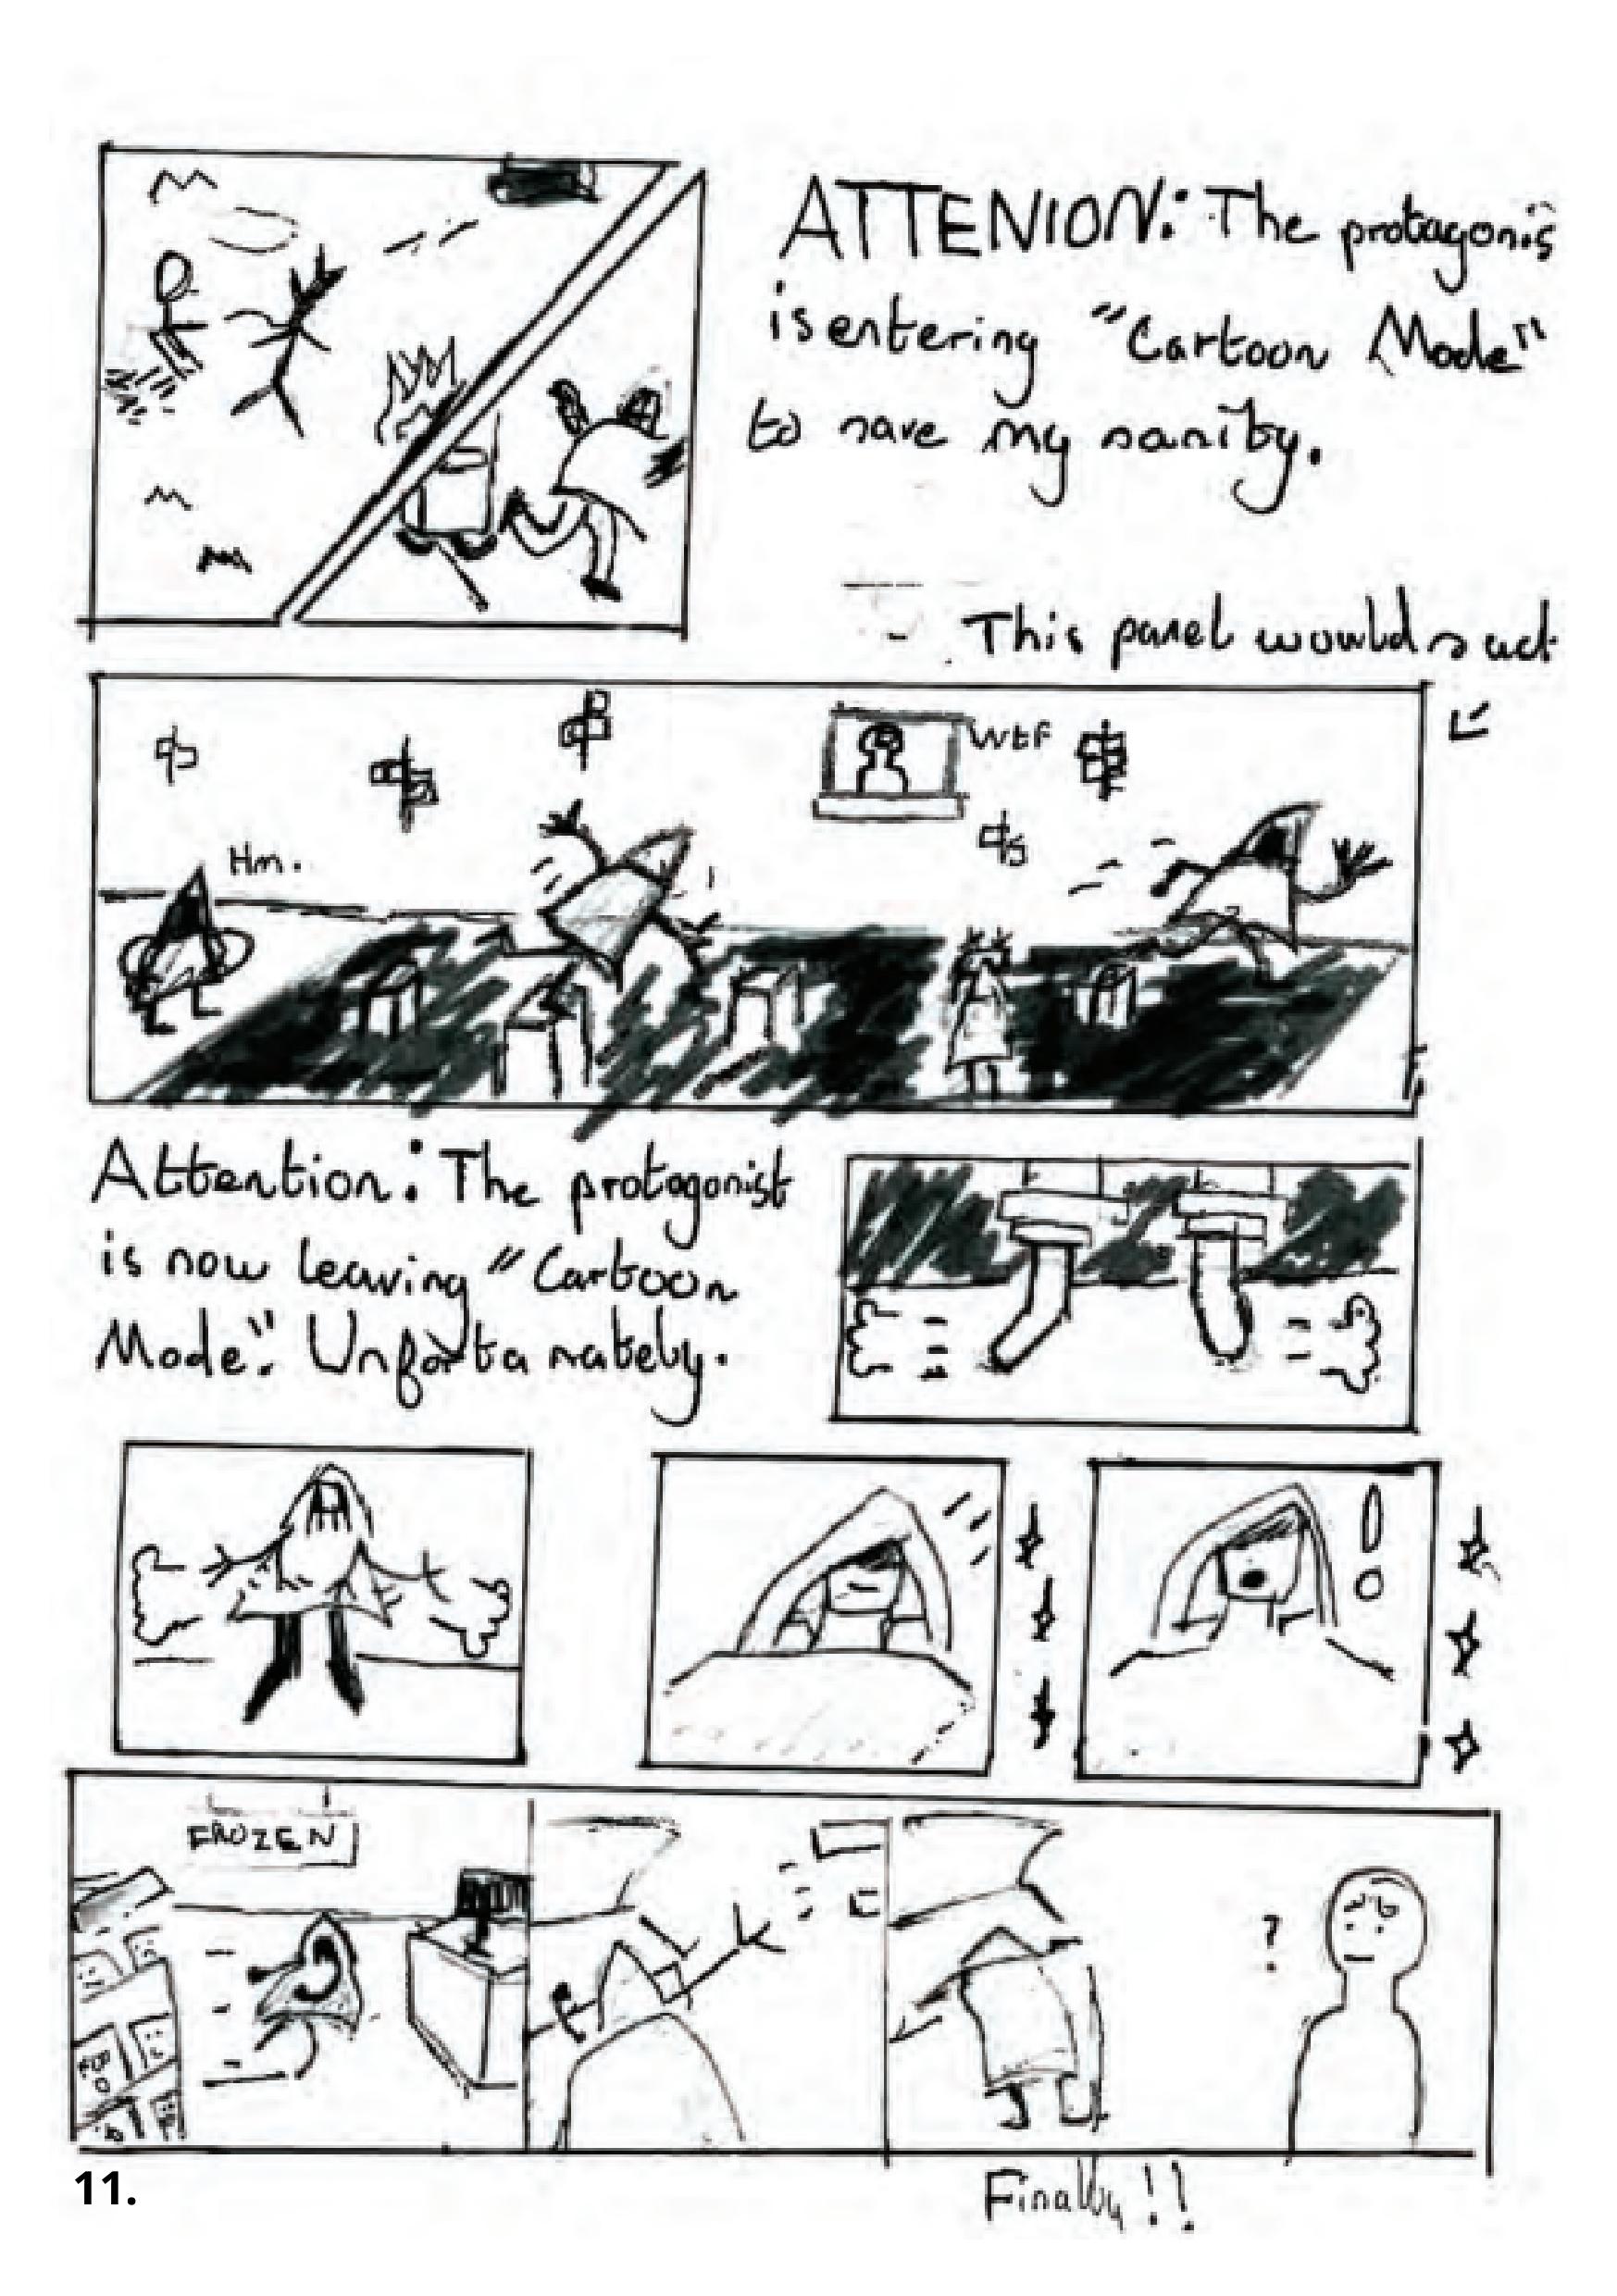 ATTENION: The protagonis
is entering "Cartoon Mode"
to save my sanity.
This panel would suck
Wtf
Hm.
Attention: The protagonist
is now leaving "Cartoon
Mode". Unfortanately.
!
FROZEN
?
Finally!!
11.